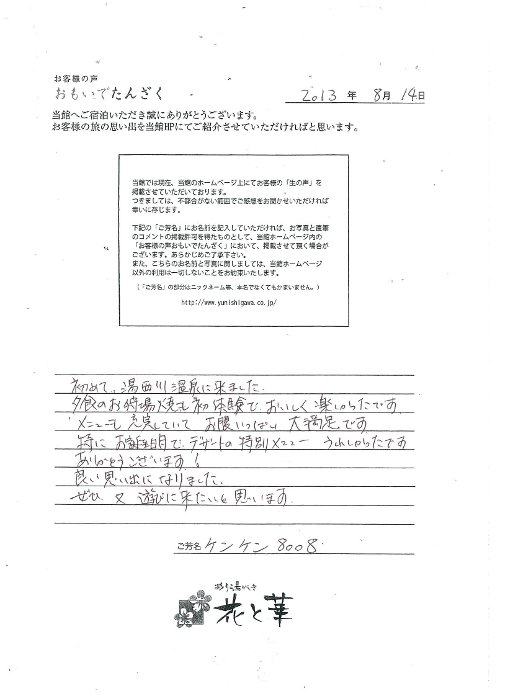 お客様の声
おもいでたんざく
2013 年 8月 14日
当館へご宿泊いただき誠にありがとうございます。
お客様の旅の思い出を当館HPにてご紹介させていただければと思います。
当館では現在、当館のホームページ上にてお客様の「生の声」を
掲載させていただいております。
つきましては、不都合がない範囲でご感想をお聞かせいただければ
幸いに存じます。
下記の「ご芳名」にお名前を記入していただければ、お写真と直筆
のコメントの掲載許可を得たものとして、当館ホームページ内の
「お客様の声おもいでたんざく」において、掲載させて頂く場合が
ございます。あらかじめご了承下さい。
また、こちらのお名前と写真に関しましては、当館ホームページ
以外の利用は一切しないことをお約束いたします。
(「ご芳名」の部分はニックネーム等、本名でなくてもかまいません。)
http://www.yunishigawa.co.jp/
初めて、湯西川温泉に来ました。
夕食のお狩場焼も初体験で、おいしく楽しかったです
メニューも充実していて お腹いっぱい 大満足です
特に お誕生日で、デザートの特別メニュー うれしかったです
ありがとうございます!
良い思い出になりました。
ぜひ 又 遊びに来たいと思います。
ご芳名 ケンケン8008
花と華